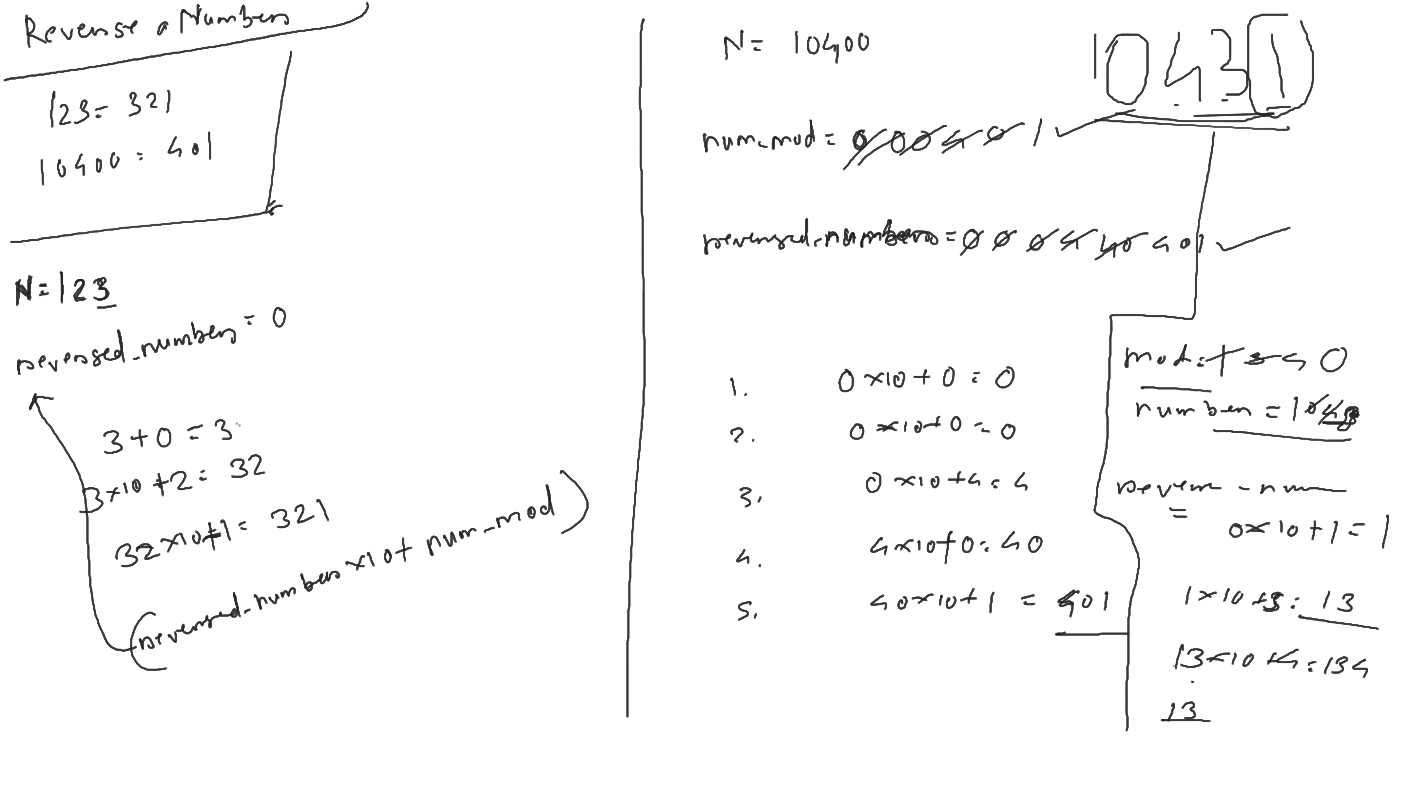 Reverse a Numbers
123 = 321
10400 = 401
N = 123
reversed_numbers = 0
3 + 0 = 3
3 × 10 + 2 = 32
32 × 10 + 1 = 321
(reversed_numbers × 10 + num_mod)
N = 10400
num_mod = 0 0 0 4 0 1
reversed_numbers = 0 0 0 4 40 401
1. 0 × 10 + 0 = 0
2. 0 × 10 + 0 = 0
3. 0 × 10 + 4 = 4
4. 4 × 10 + 0 = 40
5. 40 × 10 + 1 = 401
10431
mod = 1 3 4 0
number = 1043
= 0 × 10 + 1 = 1
1 × 10 + 3 = 13
13 × 10 + 4 = 134
13